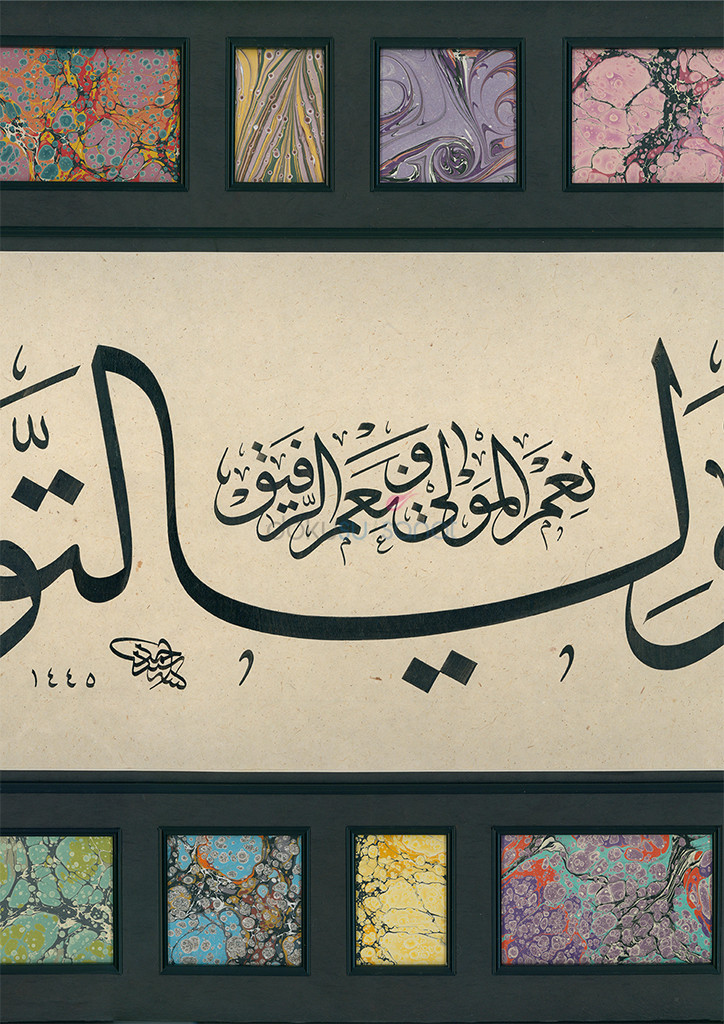 ولي التو
نِعْمَ المَوْلى وَنِعْمَ الرَّفيق
١٤٤٥